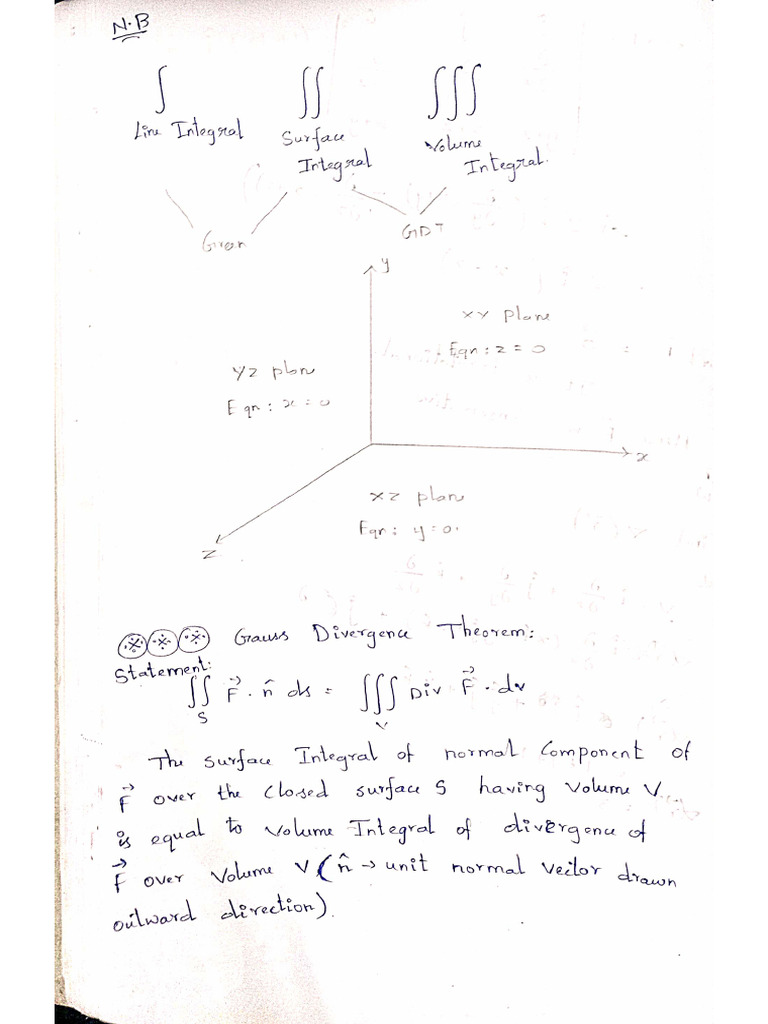 N.B
∫ ∬ ∭
Line Integral Surface Integral Volume Integral.
Green GDT
y
xy plane
Eqn: z = 0
yz plane
Eqn: x = 0
x
xz plane
Eqn: y = 0.
z
Gauss Divergence Theorem:
Statement:
∬_S F⃗ . n̂ ds = ∭_V Div F⃗ . dv
The surface Integral of normal Component of
F⃗ over the closed surface S having volume V
is equal to volume Integral of divergence of
F⃗ over volume V (n̂ → unit normal vector drawn
outward direction).